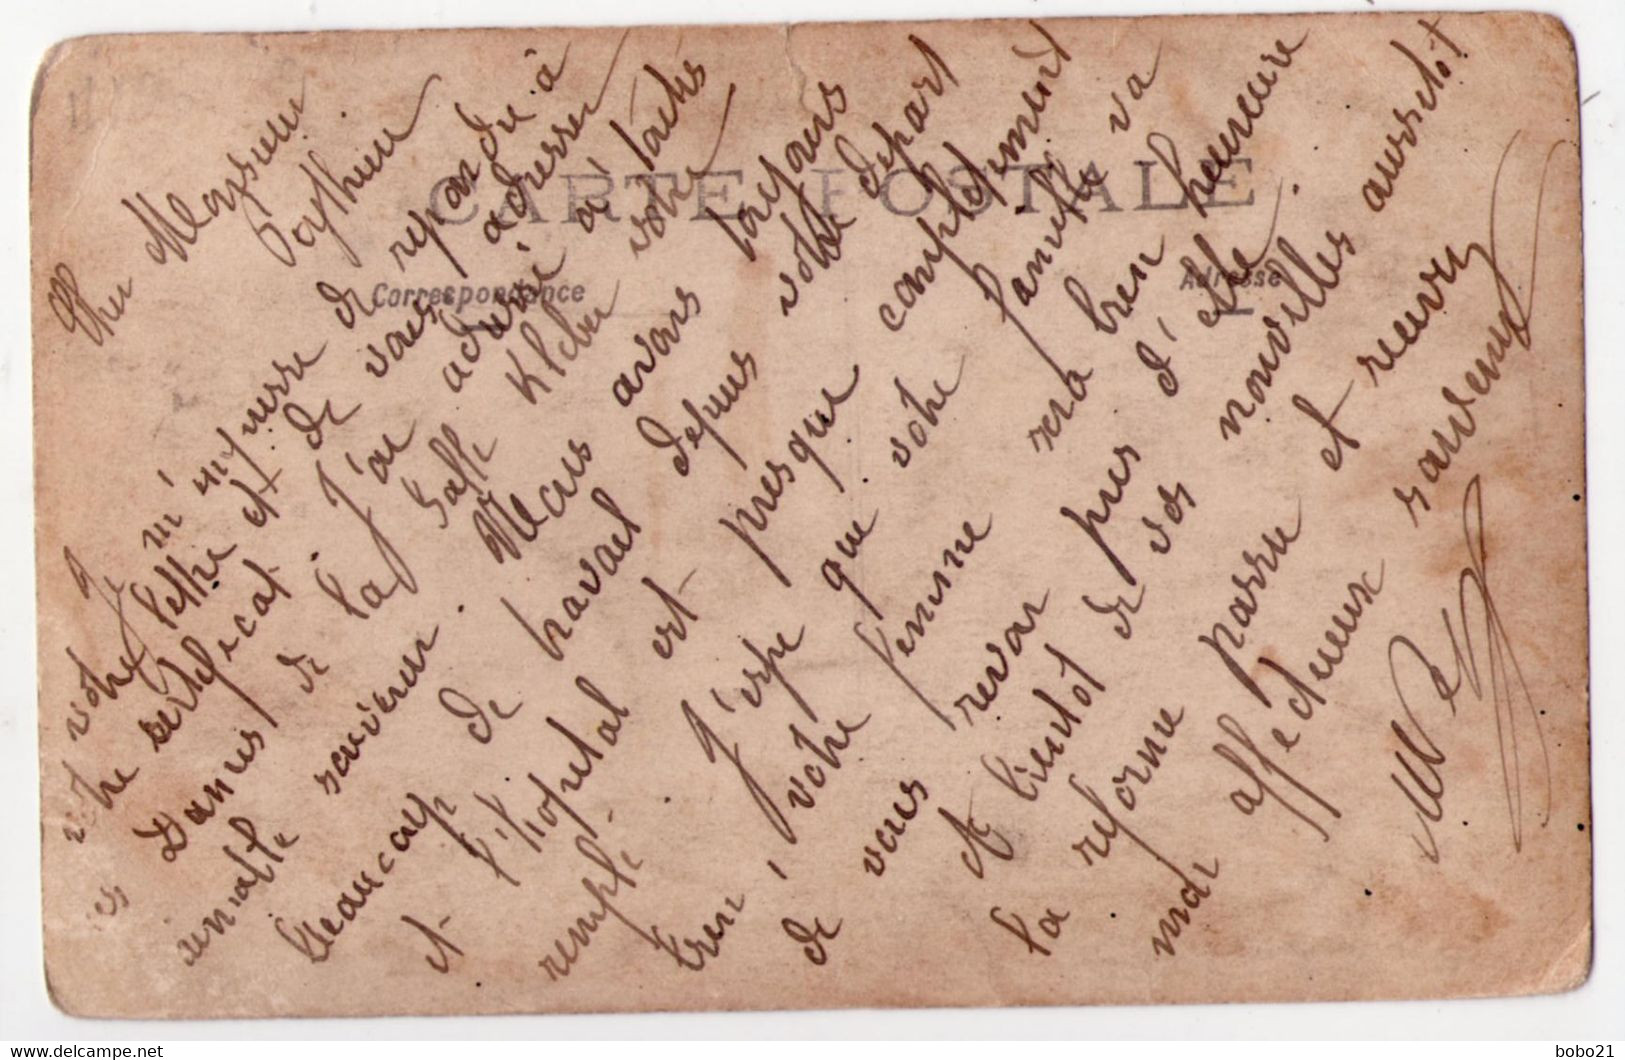 CARTE POSTALE
Correspondance
Adresse
Cher Monsieur
Je m'empresse de repondre à
votre lettre et de vous adresser
votre sertificat. J'ai adressé à toutes
les Dames de la Salle Kleber votre
aimable souvenir. Nous avons toujours
beaucoup de travail depuis votre départ
et l'hopital est presque complétement
remplé. J'espe que votre santée va
bien, votre femme sera bien heureuse
de vous revoir pres d'elle.
et bientôt de vos nouvelles aussitôt
la reforme passée et recevez
mai affectueux souvenirs
bobo21